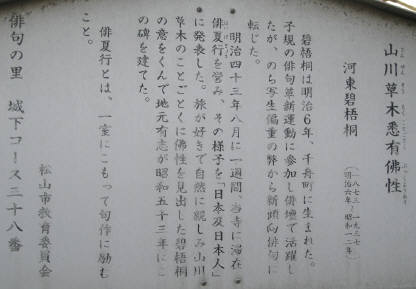 山川草木悉有佛性
河東碧梧桐
(一八七三~一九三七
明治六年~昭和一二年)
碧梧桐は明治6年、千舟町に生まれた。
子規の俳句革新運動に参加し俳壇で活躍し
たが、のち写生偏重の弊から新傾向俳句に
転じた。
明治四十三年八月に一週間、当寺に滞在
俳夏行を営み、その様子を「日本及日本人」
に発表した。旅が好きで自然に親しみ山川
草木のことごとくに佛性を見出した碧梧桐
の意をくんで地元有志が昭和五十三年にこ
の碑を建てた。
俳夏行とは、一室にこもって句作に励む
こと。
松山市教育委員会
俳句の里 城下コース三十八番